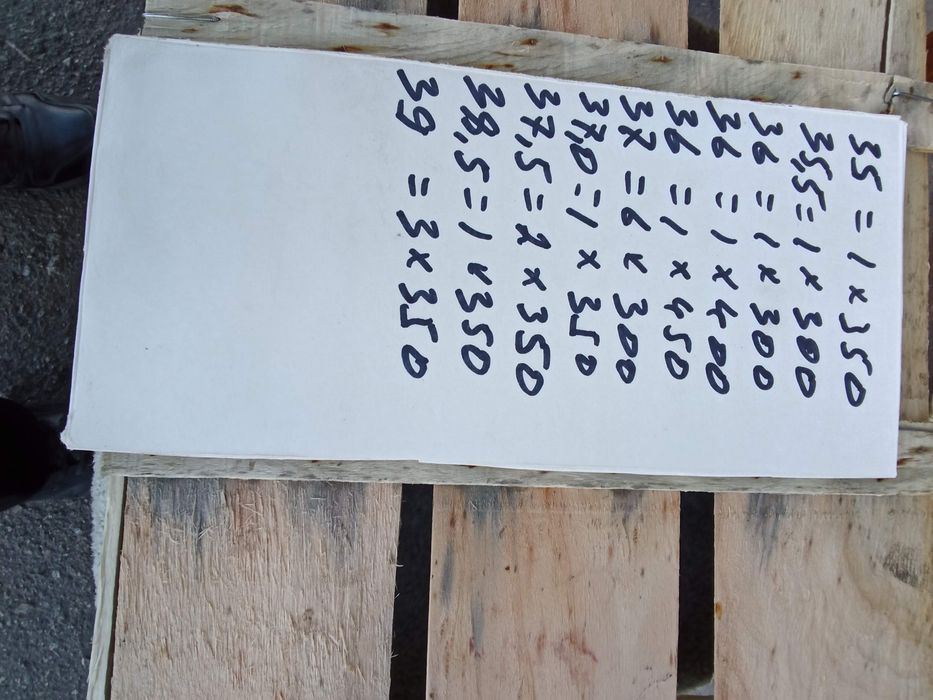 35 = 1 x 350
35,5 = 1 x 300
36 = 1 x 300
36 = 1 x 400
36 = 1 x 450
37 = 6 x 300
37,0 = 1 x 350
37,5 = 2 x 350
38,5 = 1 x 350
39 = 3 x 350